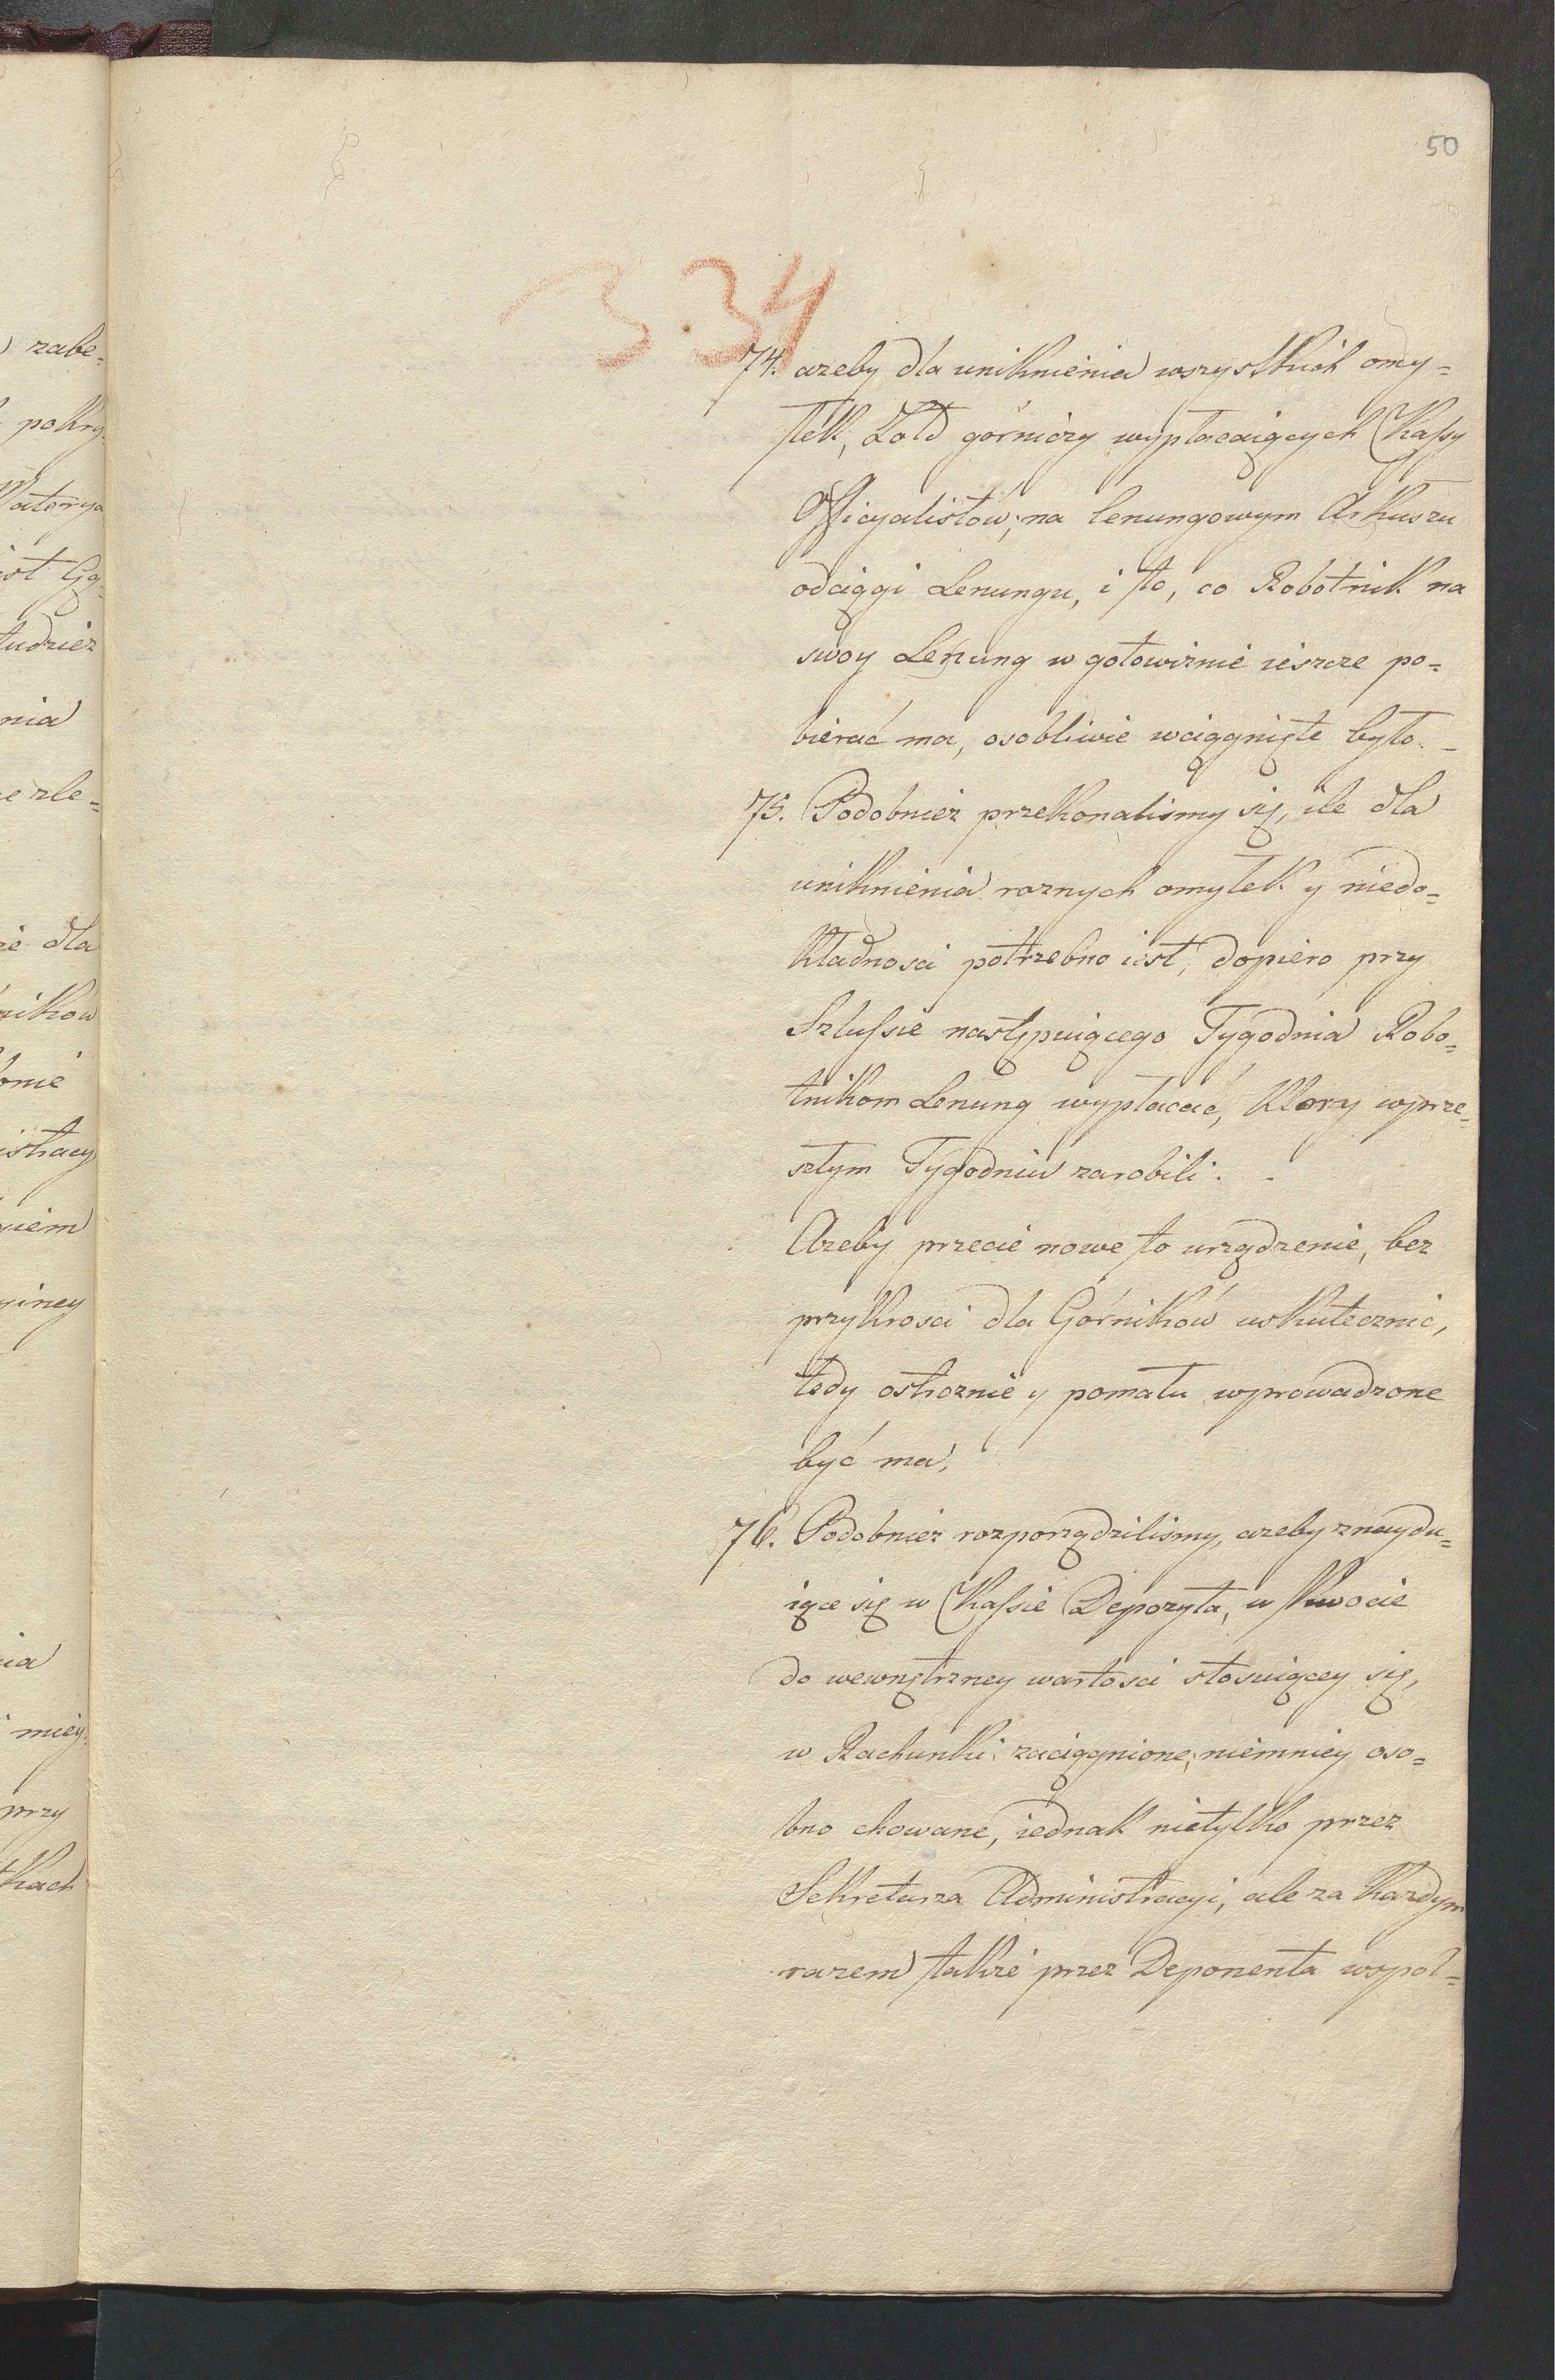 50
334
74. azeby dla uniknienia wszystkich omy=
łek, Zołd górniczy wypłacaiących Kaſsy
Officyalistów, na lenungowym Arkuszu
odciągi Lenungu, i to, co Robotnik na
swoy Lenung w gotowiznie ieszcze po=
bierać ma, osobliwie wciągnięte było. _
75. Podobnież przekonalismy się, ile dla
uniknienia roznych omyłek y niedo=
kładnosci potrzebno iest, dopiero przy
Szluſsie następuiącego Tygodnia Robo=
tnikom Lenung wypłacać, Ktory wprze=
szłym Tygodniu zarobili. _
Azeby przecie nowe to urządzenie, bez
przykrosci dla Górników uskutecznić,
tedy ostroznie y pomału wprowadzone
być ma.
76. Podobnież rozporządzilismy, azeby znaydu=
iące się w Kaſsie Depozyta, w Kwocie
do wewnętrzney wartosci stosuiącey się,
w Rachunki zaciągnione, niemniey oso=
bno chowane, iednak nietylko przez
Sekretarza Administracyi, ale za Kazdym
razem także przez Deponenta wspol=
zabe=
pokry
Materya
tudzież
nia
zle=
dla
nikow
istracy
giem
yiney
ia
miey
przy
tkach